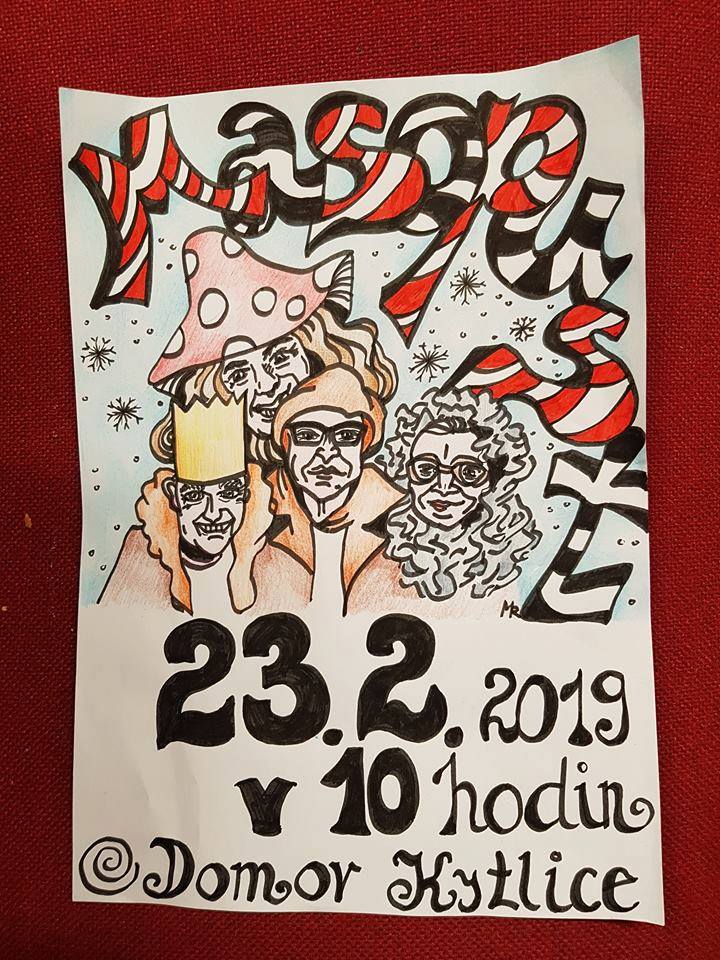 masopust
MR
23. 2. 2019
v 10 hodin
@ Domov Kytlice